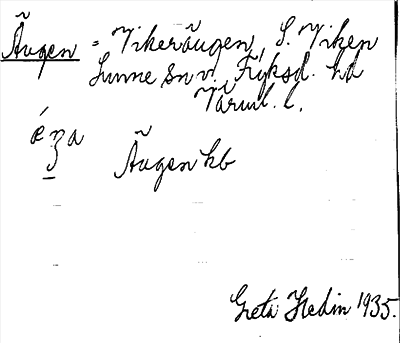 Ãugen = Vikerãugen, S. Viken
Sunne sn v. Fryksd. hd
Värml. l.
Ãugen kb
Greta Hedin 1935.